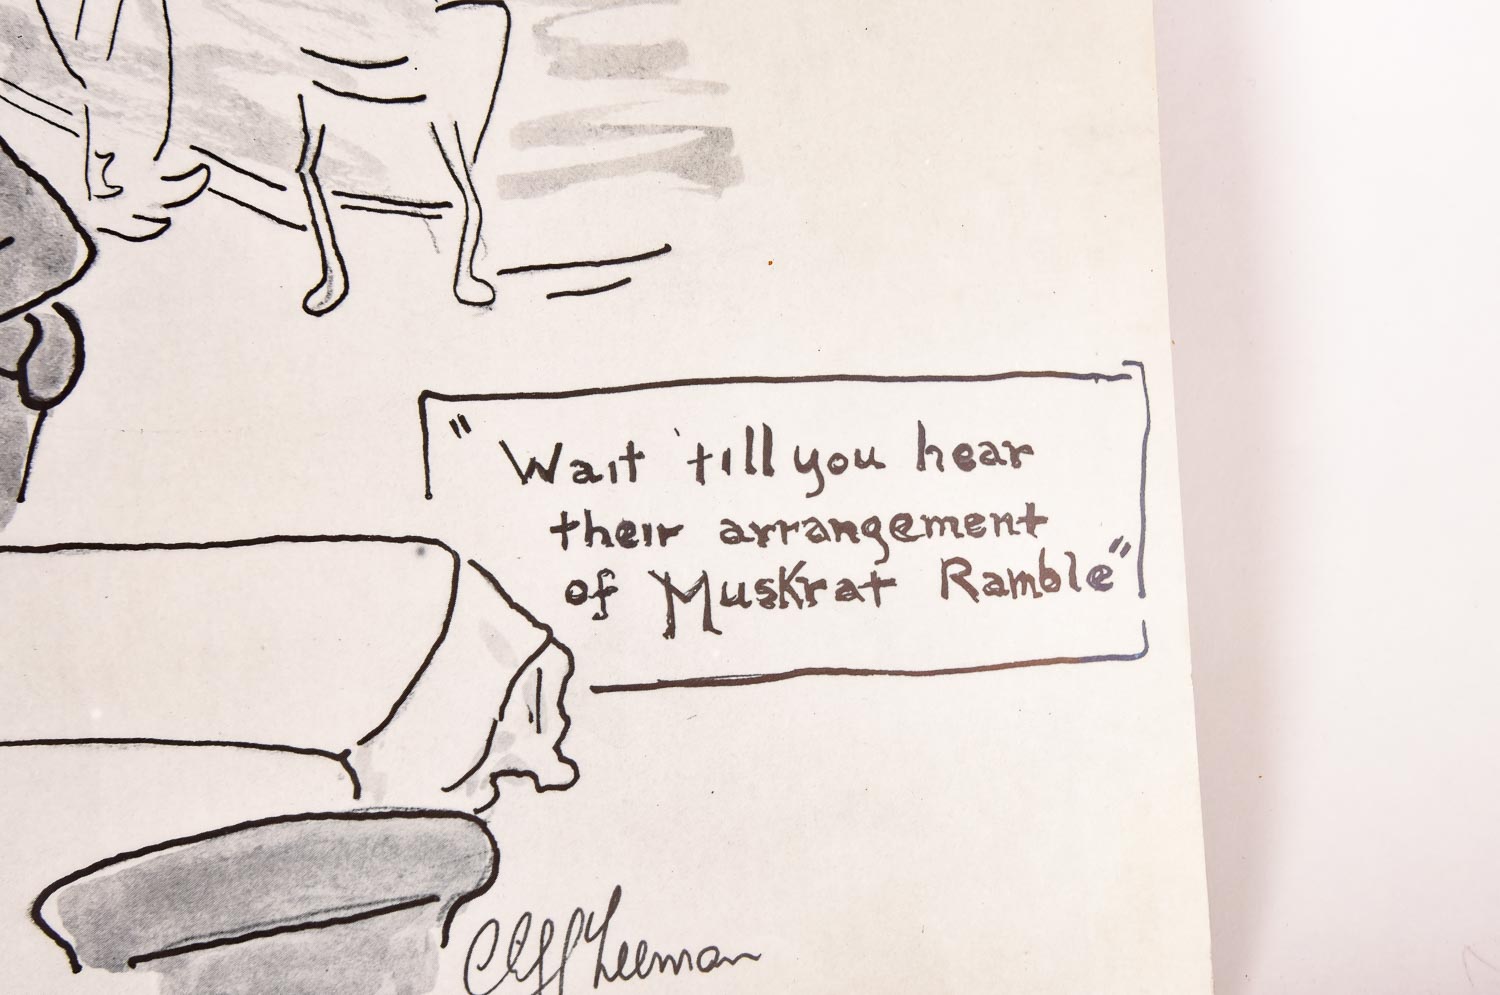 " Wait 'till you hear
their arrangement
of Muskrat Ramble"
Cliff Leeman